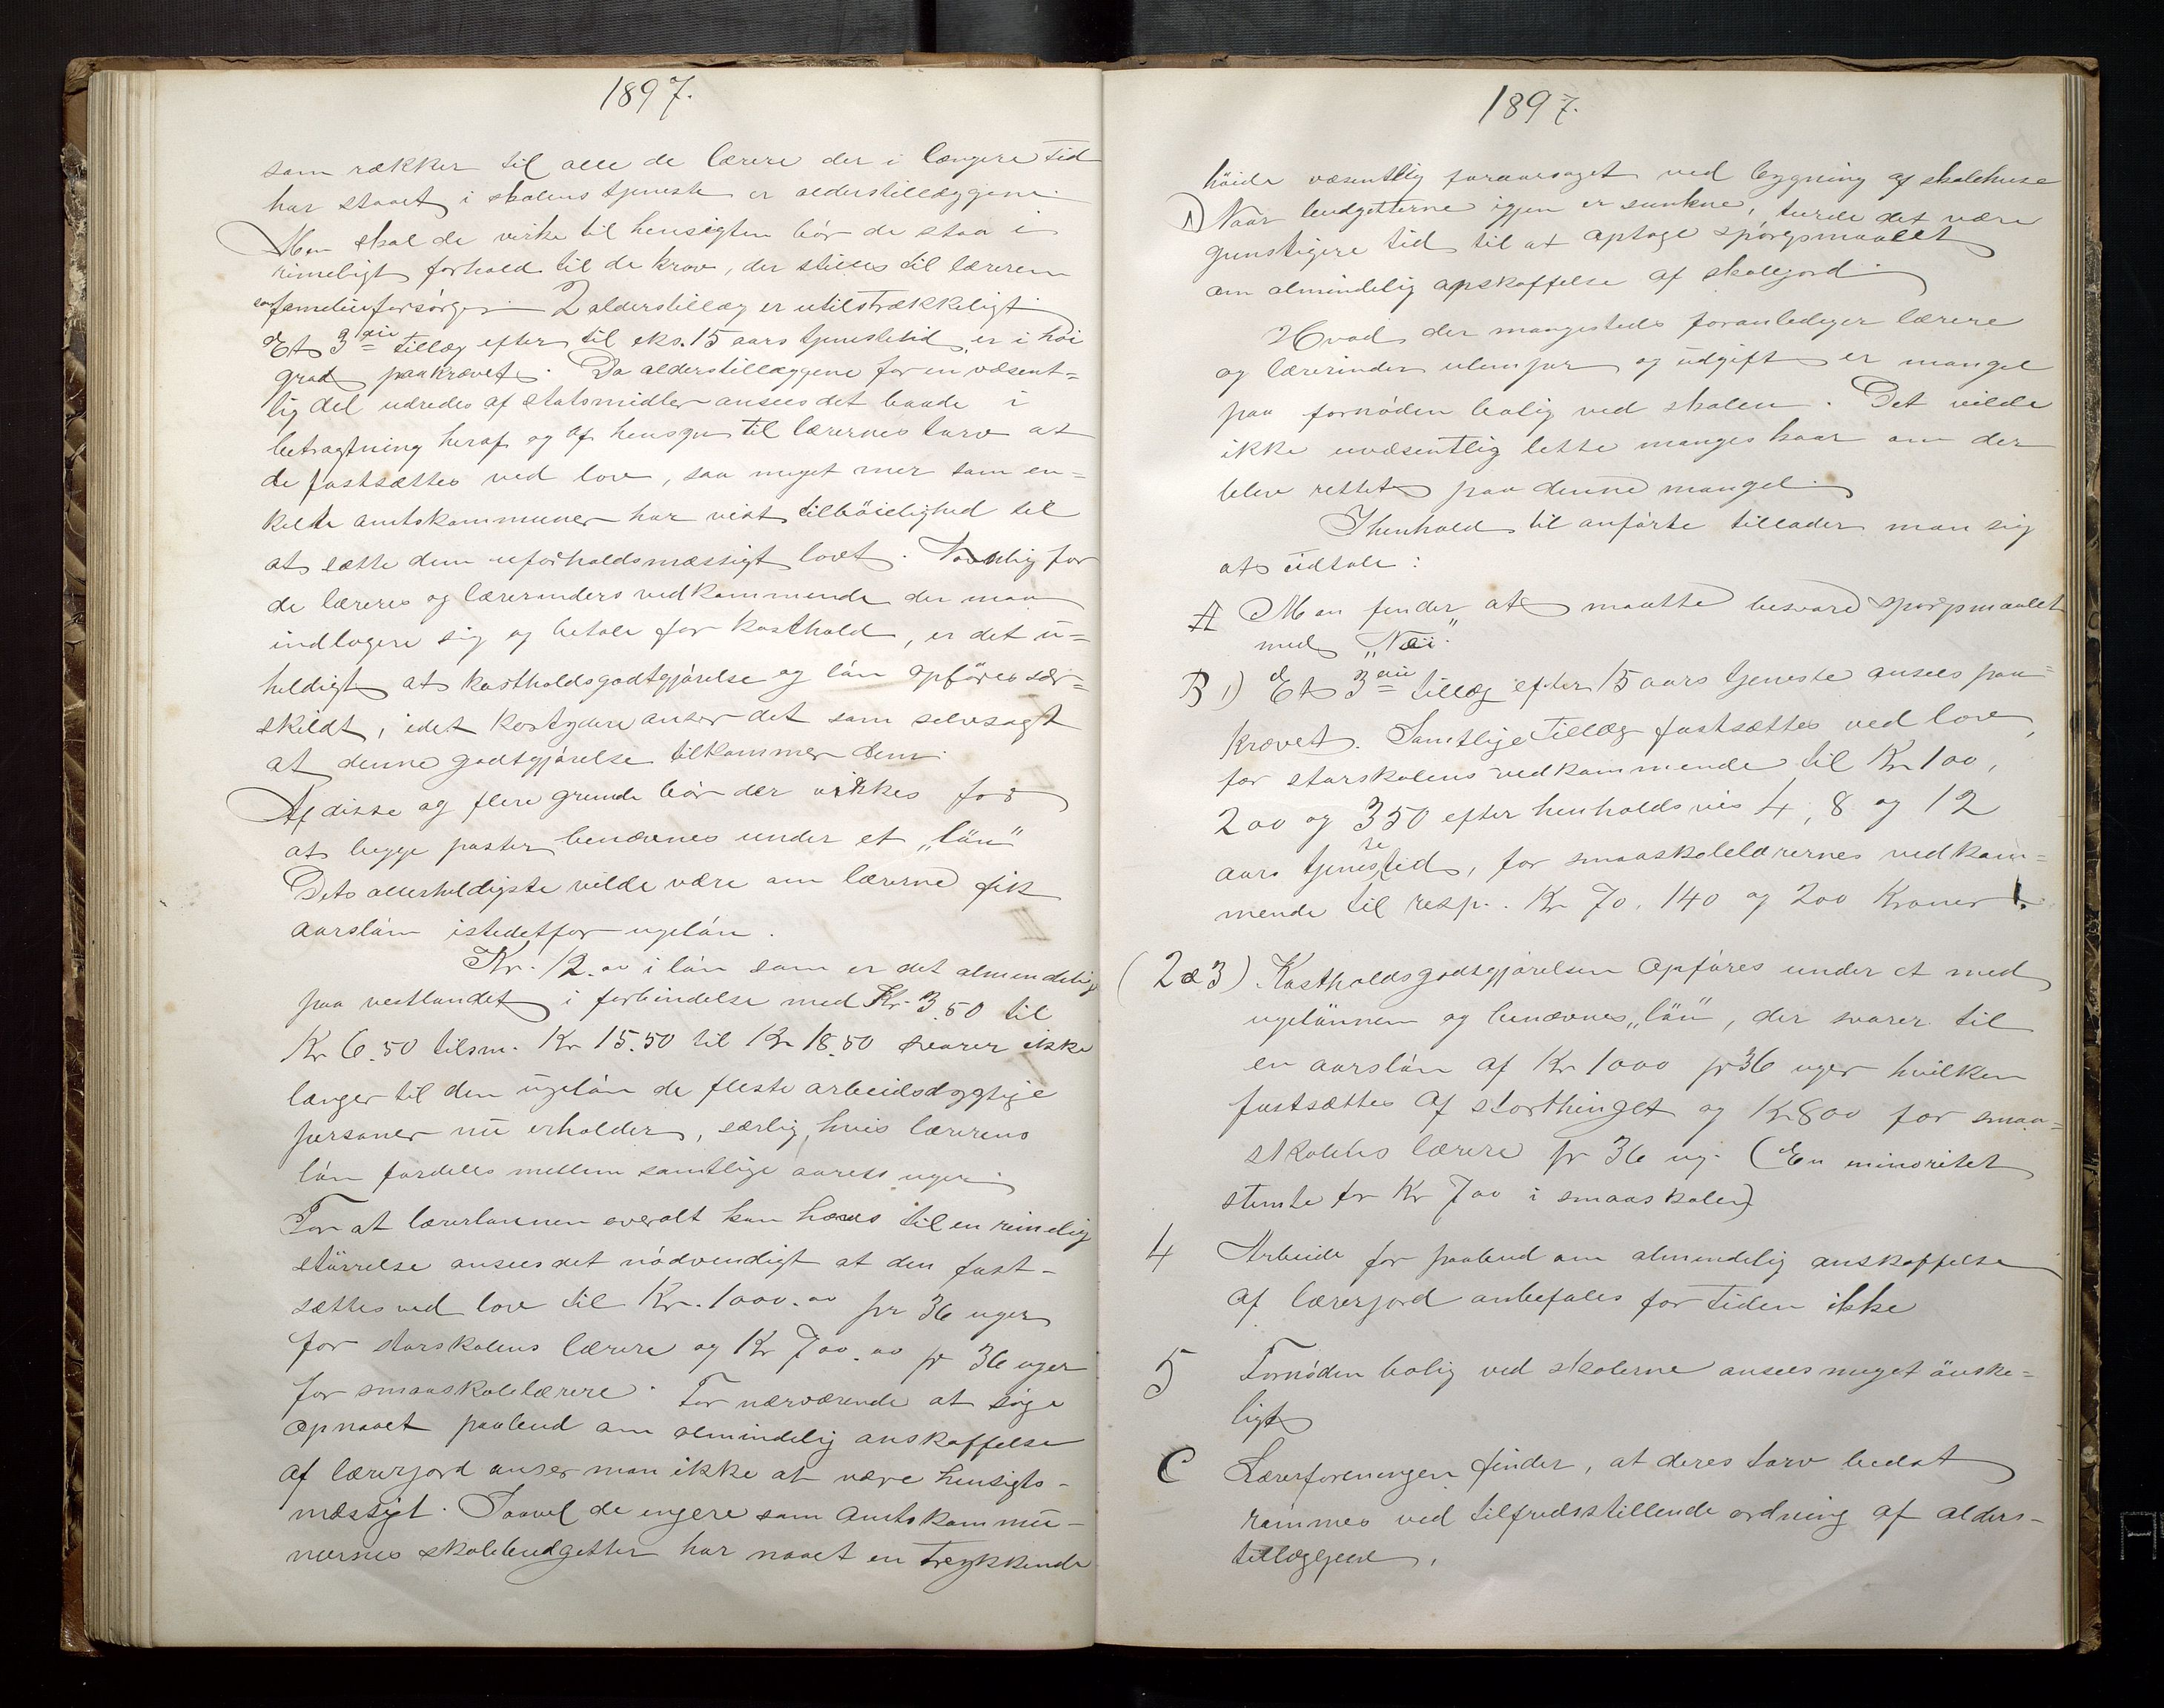 1897.
som rækker til alle de lærere der i længere tid
har staaet i skolens tjeneste er alderstillæggene.
Men skal de virke til hensigten bör de staa i
rimeligt forhold til de krav, der stilles til læreren
som familieforsörger. 2 alderstillæg er utilstrækkeligt.
Et 3die tillæg efter til eks. 15 aars tjenestetid er i höi
grad paakrævet. Da alderstillæggene for en væsent=
lig del udredes af statsmidler ansees det baade i
betragtning heraf og af hensyn til lærernes tarv at
de fastsættes ved lov, saa meget mer som en=
kelte amtskommuner har vist tilböielighed til
at sætte dem uforholdsmæssigt lavt. Navnlig for
de læreres og lærerinders vedkommende der maa
indlogere sig og betale for kosthold, er det u=
heldigt at kostholdsgodtgjörelse og lön opföres sær=
skildt, idet kostydere anser det som selvsagt
at denne godtgjörelse tilkommer dem.
Af disse og flere grunde bör der virkes for
at begge poster benævnes under et „lön"
Det allerheldigste vilde være om lærerne fik
aarslön istedetfor ugelön.
Kr. 12.00 i lön som er det almindelige
paa vestlandet i forbindelse med Kr. 3.50 til
Kr 6.50 tilsm. Kr 15.50 til Kr 18.50 svarer ikke
længer til den ugelön de fleste arbeidsdygtige
personer nu erholder, særlig, hvis lærerens
lön fordeles mellem samtlige aarets uger.
For at lærerlønnen overalt kan hæves til en rimelig
störrelse ansees det nödvendigt at den fast-
sættes ved lov til Kr. 1000.00 pr 36 uger
for storskolens lærere og Kr 700.00 pr 36 uger
for smaaskolelærere. For nærværende at söge
opnaaet paabud om almindelig anskaffelse
af lærerjord anser man ikke at være hensigts-
mæssigt. Saavel de engere som Amtskommu-
nernes skolebudgetter har naaet en trykkende
1897.
höide væsentlig foraarsaget ved bygning af skolehuse
1) Naar budgetterne igjen er sunkne, turde det være
gunstigere tid til at optage spörgsmaalet
om almindelig anskaffelse af skolejord.
Hvad der mangesteds foranlediger lærere
og lærerinder ulemper og udgift er mangel
paa fornöden bolig ved skolen. Det vilde
ikke uvæsentlig lette manges kaar om der
blev rettet paa denne mangel.
I henhold til anförte tillader man sig
at udtale:
A Man finder at maatte besvare spörgsmaalet
med „Nei."
B 1) Et 3die tillæg efter 15 aars tjeneste ansees paa=
krævet. Samtlige tillæg fastsættes ved lov,
for storskolens vedkommende til Kr 100,
200 og 350 efter henholdsvis 4, 8 og 12
aars tjenestetid, for smaaskolelærernes vedkom=
mende til resp. Kr 70, 140 og 200 Kroner.
(2 & 3) Kostholdsgodtgjörelsen opföres under et med
ugelönnen og benævnes „lön", der svarer til
en aarslön af Kr 1000 pr 36 uger hvilken
fastsættes af storthinget og Kr 800 for smaa=
skolens lærere pr 36 ug. (En minoritet
stemte for Kr 700 i smaaskolen)
4 Arbeide for paabud om almindelig anskaffelse
af lærerjord anbefales for tiden ikke
5 Fornöden bolig ved skolerne ansees meget önske=
ligt
C Lærerforeningen finder, at deres tarv bedst
rammes ved tilfredsstillende ordning af alders-
tillæggene.